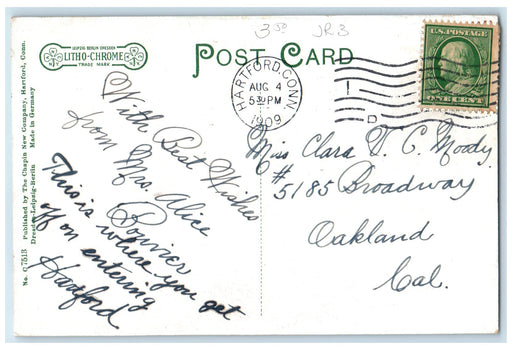 3.50 JR3
LEIPZIG BERLIN DRESDEN
LITHO-CHROME
TRADE MARK
POST CARD
HARTFORD, CONN.
AUG 4
5 30 PM
1909
D
U.S. POSTAGE
ONE CENT
No. C 7513 Published by The Chapin News Company, Hartford, Conn.
Dresden-Leipzig-Berlin Made in Germany
With Best Wishes
from Mrs. Alice
Bouvier
This is where you get
off on entering
Hartford
Miss Clara V. C. Moody
# 5185 Broadway
Oakland
Cal.